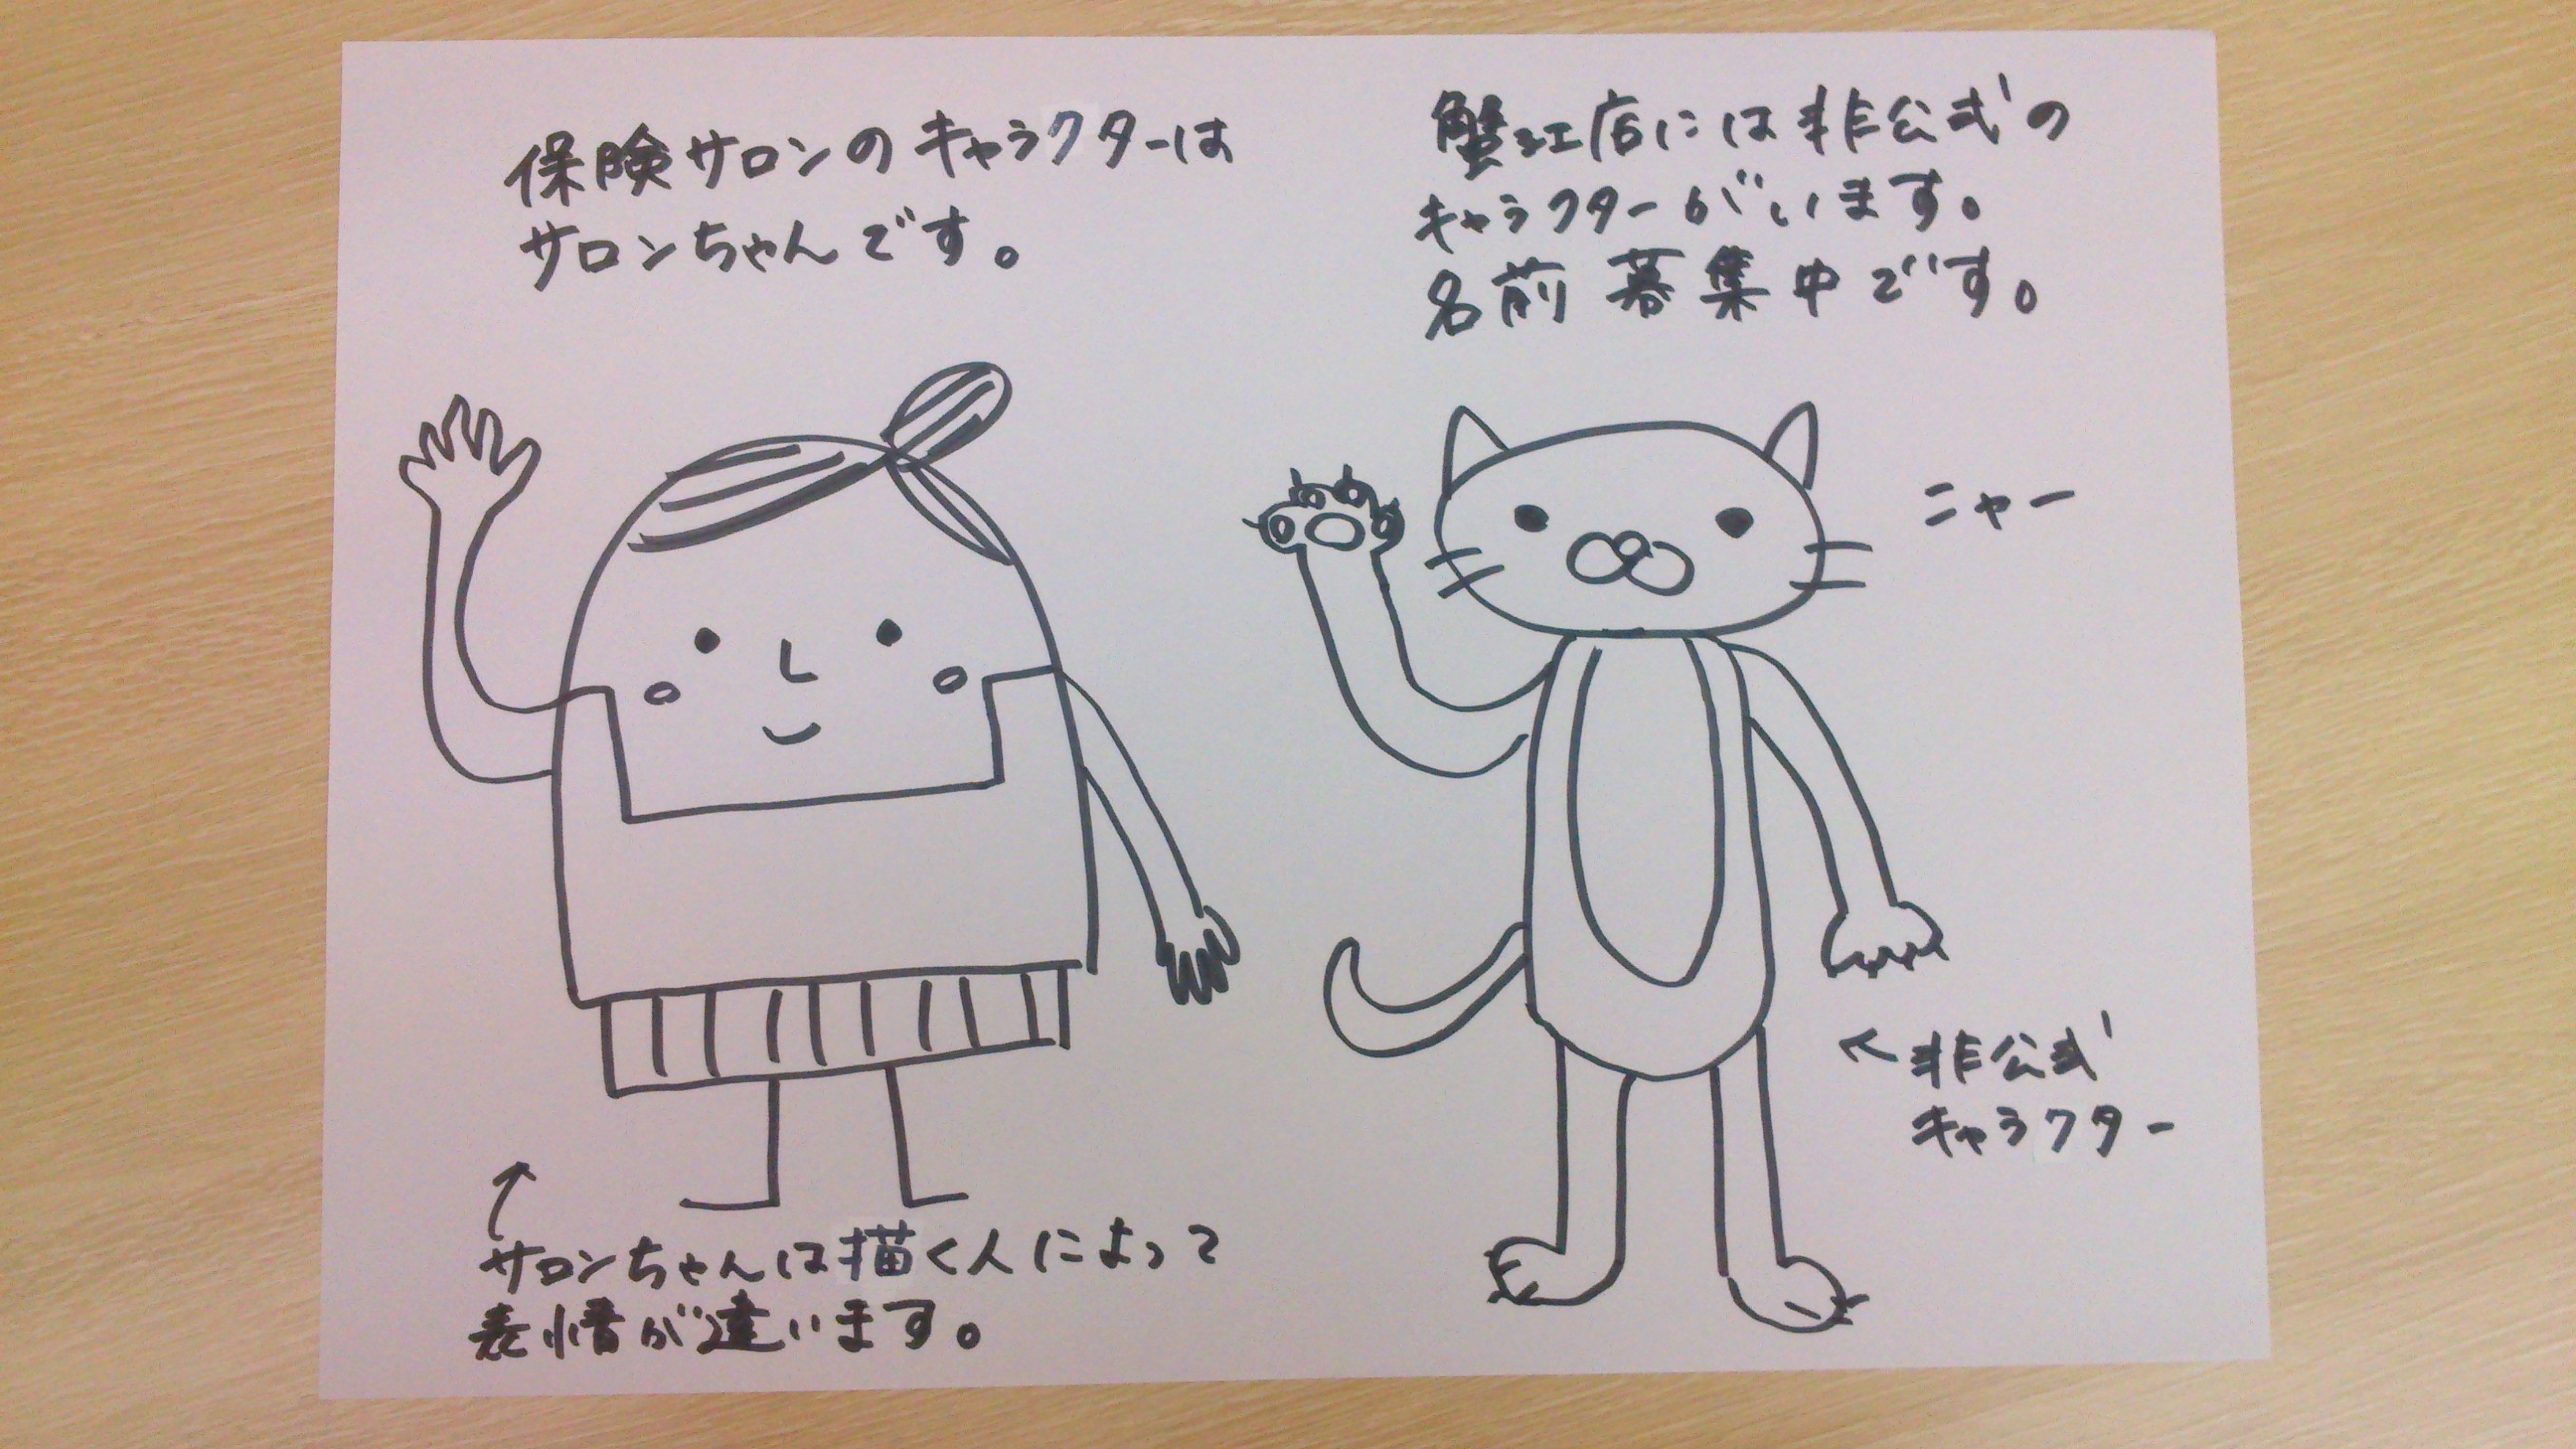 保険サロンのキャラクターは
サロンちゃんです。
サロンちゃんは描く人によって
表情が違います。
蟹江店には非公式の
キャラクターがいます。
名前募集中です。
ニャー
←非公式
キャラクター